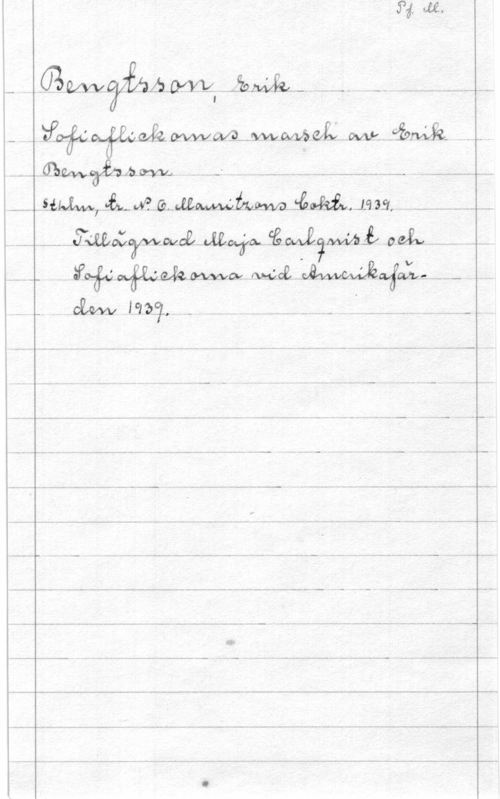 Pf. M.
Bengtsson, Erik
Sofiaflickornas marsch av Erik
Bengtsson
Sthlm, tr. O. Mauritzons boktr. 1939.
Tillägnad Maja Carlqvist och
Sofiaflickorna vid Amerikafär-
den 1939.